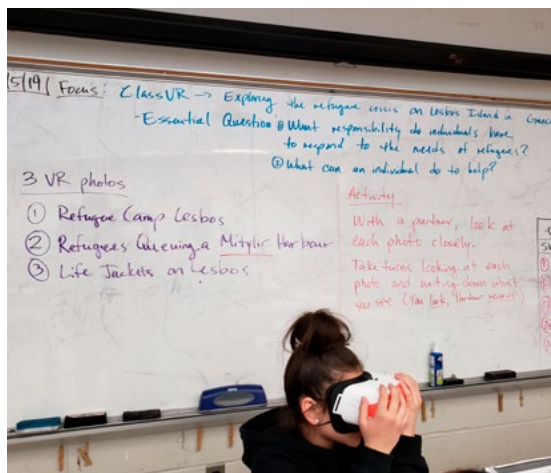 5/19 | Focus: ClassVR → Exploring the refugee crisis on Lesbos Island in Greece
- Essential Question ① What responsibility do individuals have
to respond to the needs of refugees?
② What can an individual do to help?
3 VR photos
① Refugee Camp Lesbos
② Refugees Queuing a Mitylir Harbour
③ Life Jackets on Lesbos
Activity
With a partner, look at
each photo closely.
Take turns looking at each
photo and writing down what
you see (You look, Partner records)